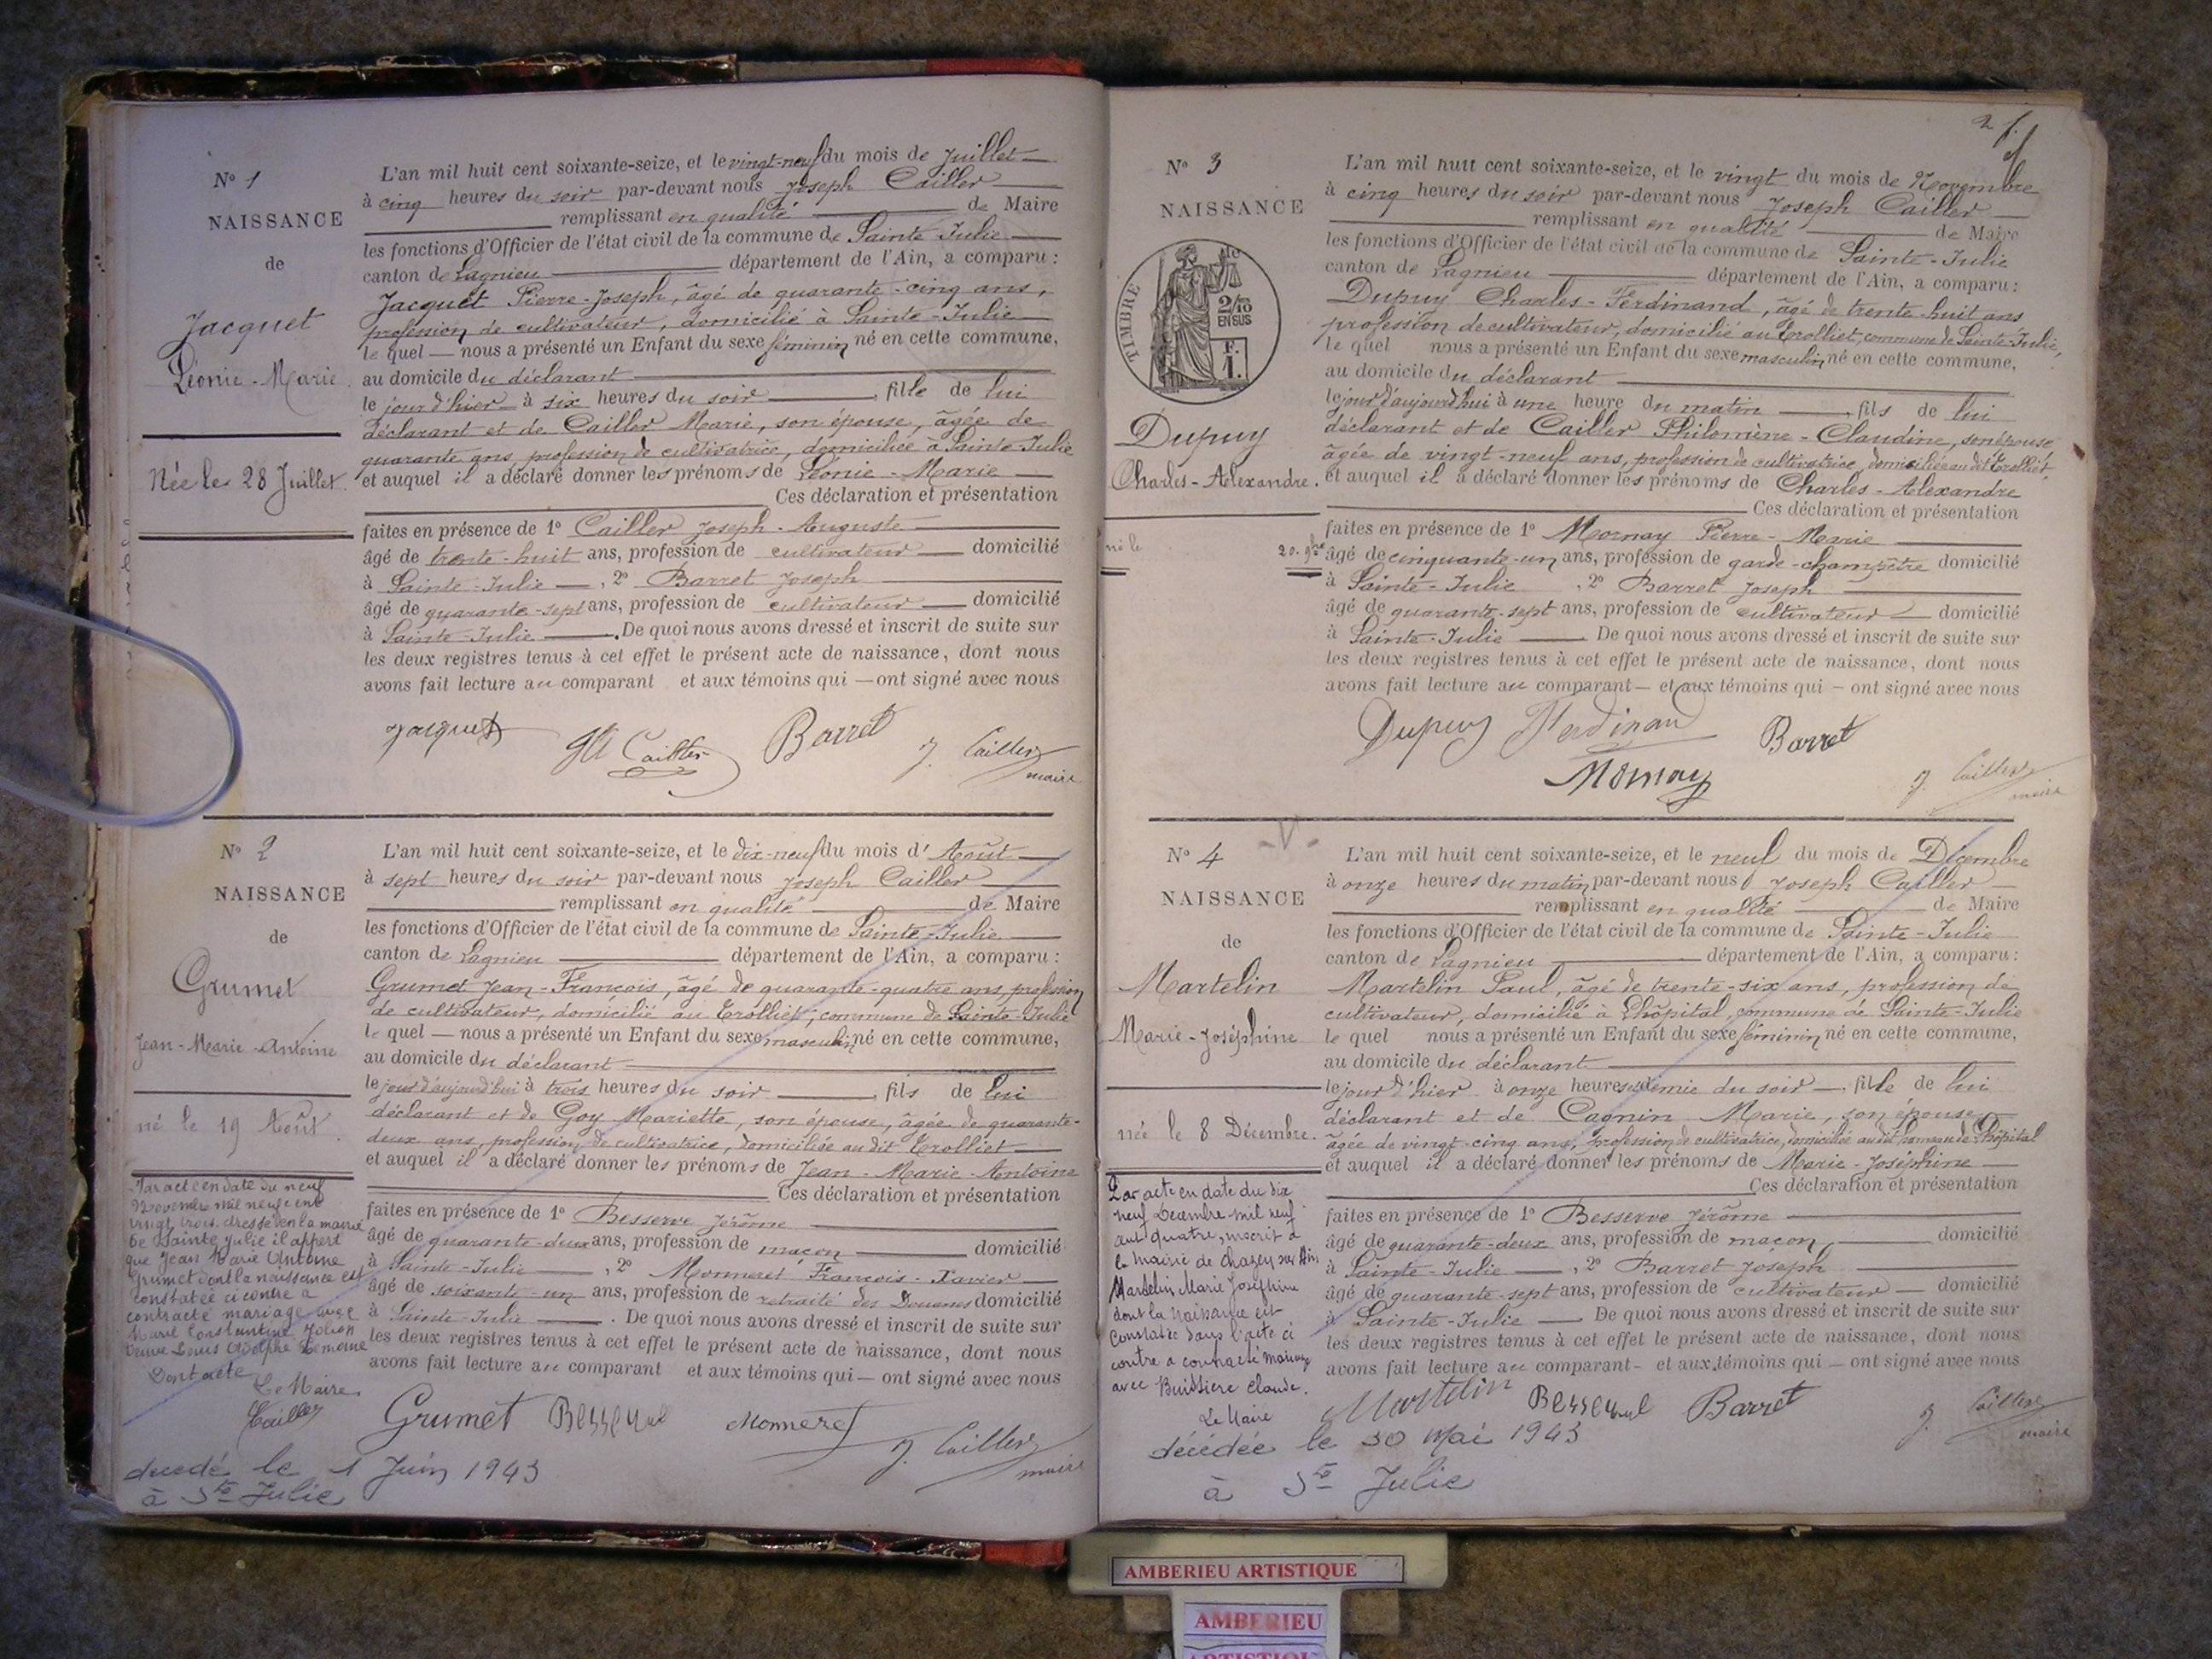 N° 1
NAISSANCE
de
Jacquet
Léonie-Marie.
Née le 28 Juillet.
L'an mil huit cent soixante-seize, et le vingt-neuf du mois de Juillet
à cinq heures du soir par-devant nous Joseph Cailler
remplissant en qualité de Maire
les fonctions d'Officier de l'état civil de la commune de Sainte-Julie
canton de Lagnieu département de l'Ain, a comparu :
Jacquet Pierre-Joseph, âgé de quarante-cinq ans,
profession de cultivateur, domicilié à Sainte-Julie
le quel — nous a présenté un Enfant du sexe féminin né en cette commune,
au domicile du déclarant
le jour d'hier à six heures du soir, fille de lui
déclarant et de Cailler Marie, son épouse, âgée de
quarante ans, profession de cultivatrice, domiciliée à Sainte-Julie
et auquel il a déclaré donner les prénoms de Léonie-Marie
Ces déclaration et présentation
faites en présence de 1° Cailler Joseph-Auguste
âgé de trente-huit ans, profession de cultivateur domicilié
à Sainte-Julie, 2° Barret Joseph
âgé de quarante-sept ans, profession de cultivateur domicilié
à Sainte-Julie. De quoi nous avons dressé et inscrit de suite sur
les deux registres tenus à cet effet le présent acte de naissance, dont nous
avons fait lecture au comparant et aux témoins qui — ont signé avec nous
Jacquet Cailler Barret J. Cailler
maire
N° 2
NAISSANCE
de
Grumet
Jean-Marie-Antoine
né le 19 Août.
Par acte en date du neuf
Novembre mil neuf cent
vingt trois dressé en la mairie
de Sainte Julie il appert
que Jean Marie Antoine
Grumet dont la naissance est
constatée ci contre a
contracté mariage avec
Marie Constantine
veuve Louis Adolphe
Dont acte
Le Maire
Cailler
décédé le 1 Juin 1943
à Ste Julie
L'an mil huit cent soixante-seize, et le dix-neuf du mois d'Août
à sept heures du soir par-devant nous Joseph Cailler
remplissant en qualité de Maire
les fonctions d'Officier de l'état civil de la commune de Sainte-Julie
canton de Lagnieu département de l'Ain, a comparu :
Grumet Jean-François, âgé de quarante-quatre ans, profession
de cultivateur, domicilié au Trolliet, commune de Sainte-Julie
le quel — nous a présenté un Enfant du sexe masculin né en cette commune,
au domicile du déclarant
le jour d'aujourd'hui à trois heures du soir, fils de lui
déclarant et de Goy Mariette, son épouse, âgée de quarante-
deux ans, profession de cultivatrice, domiciliée au dit Trolliet
et auquel il a déclaré donner les prénoms de Jean-Marie-Antoine
Ces déclaration et présentation
faites en présence de 1° Besserve Jérôme
âgé de quarante-deux ans, profession de maçon domicilié
à Sainte-Julie, 2° Monneret François-Xavier
âgé de soixante-un ans, profession de retraité des Douanes domicilié
à Sainte-Julie. De quoi nous avons dressé et inscrit de suite sur
les deux registres tenus à cet effet le présent acte de naissance, dont nous
avons fait lecture au comparant et aux témoins qui — ont signé avec nous
Grumet Besserve Monneret J. Cailler
maire
2
N° 3
NAISSANCE
TIMBRE
2/10
EN SUS
F.
1.
Dupuy
Charles-Alexandre.
né le 20. 9bre
L'an mil huit cent soixante-seize, et le vingt du mois de Novembre
à cinq heures du soir par-devant nous Joseph Cailler
remplissant en qualité de Maire
les fonctions d'Officier de l'état civil de la commune de Sainte-Julie
canton de Lagnieu département de l'Ain, a comparu :
Dupuy Charles-Ferdinand, âgé de trente-huit ans
profession de cultivateur, domicilié au Trolliet, commune de Sainte-Julie,
le quel nous a présenté un Enfant du sexe masculin né en cette commune,
au domicile du déclarant
le jour d'aujourd'hui à une heure du matin, fils de lui
déclarant et de Cailler Philomène-Claudine, son épouse,
âgée de vingt-neuf ans, profession de cultivatrice, domiciliée au dit Trolliet,
et auquel il a déclaré donner les prénoms de Charles-Alexandre
Ces déclaration et présentation
faites en présence de 1° Mornay Pierre-Marie
âgé de cinquante-un ans, profession de garde-champêtre domicilié
à Sainte-Julie, 2° Barret Joseph
âgé de quarante-sept ans, profession de cultivateur domicilié
à Sainte-Julie De quoi nous avons dressé et inscrit de suite sur
les deux registres tenus à cet effet le présent acte de naissance, dont nous
avons fait lecture au comparant — et aux témoins qui — ont signé avec nous
Dupuy Ferdinand Barret
Mornay J. Cailler
maire
N° 4
NAISSANCE
de
Martelin
Marie-Joséphine
née le 8 Décembre.
Par acte en date du dix
neuf Décembre mil neuf
cent quatre, inscrit à
la mairie de Chazey sur Ain
Martelin Marie Joséphine
dont la naissance est
constatée dans l'acte ci
contre a contracté mariage
avec Buissiere Claude.
Le Maire
décédée le 30 Mai 1943
à Ste Julie
L'an mil huit cent soixante-seize, et le neuf du mois de Décembre
à onze heures du matin par-devant nous Joseph Cailler
remplissant en qualité de Maire
les fonctions d'Officier de l'état civil de la commune de Sainte-Julie
canton de Lagnieu département de l'Ain, a comparu :
Martelin Paul, âgé de trente-six ans, profession de
cultivateur, domicilié à Lhôpital, commune de Sainte-Julie
le quel nous a présenté un Enfant du sexe féminin né en cette commune,
au domicile du déclarant
le jour d'hier à onze heures et demie du soir, fille de lui
déclarant et de Cagnin Marie, son épouse,
âgée de vingt-cinq ans, profession de cultivatrice, domiciliée au dit hameau de Lhôpital
et auquel il a déclaré donner les prénoms de Marie-Joséphine
Ces déclaration et présentation
faites en présence de 1° Besserve Jérôme
âgé de quarante-deux ans, profession de maçon domicilié
à Sainte-Julie, 2° Barret Joseph
âgé de quarante-sept ans, profession de cultivateur domicilié
à Sainte-Julie De quoi nous avons dressé et inscrit de suite sur
les deux registres tenus à cet effet le présent acte de naissance, dont nous
avons fait lecture au comparant — et aux témoins qui — ont signé avec nous
Martelin Besserve Barret J. Cailler
maire
AMBERIEU ARTISTIQUE
AMBERIEU
ARTISTIQUE